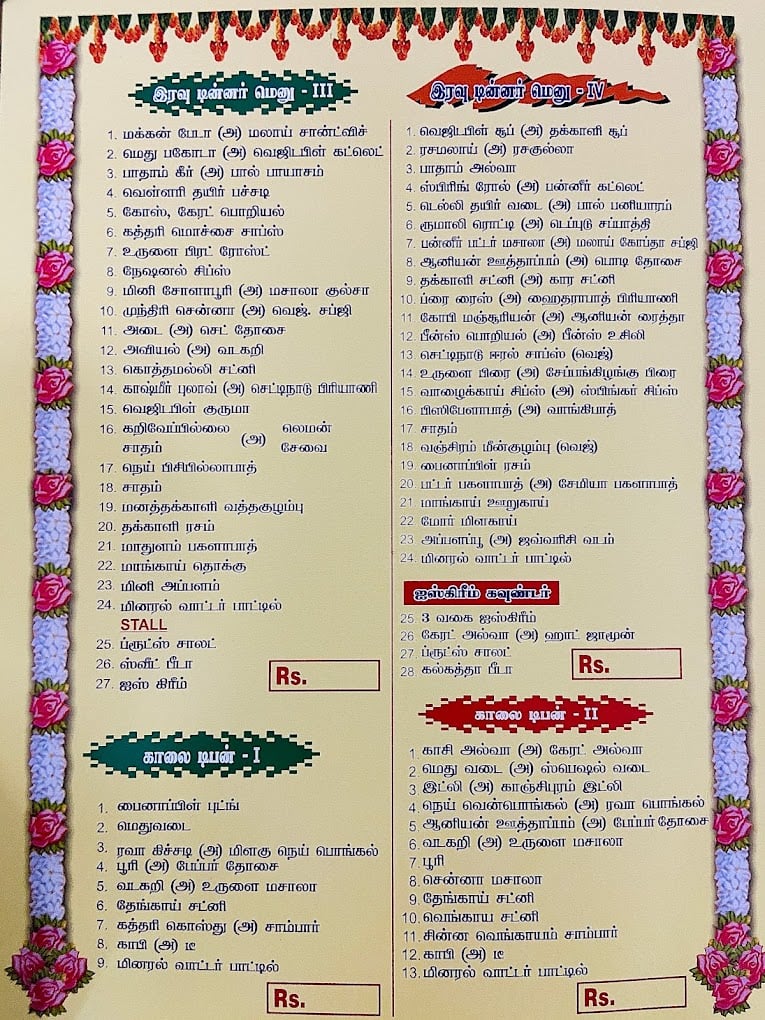 இரவு டின்னர் மெனு - III
1. மக்கன் பேடா (அ) மலாய் சாண்ட்விச்
2. மெது பகோடா (அ) வெஜிடபிள் கட்லெட்
3. பாதாம் கீர் (அ) பால் பாயாசம்
4. வெள்ளரி தயிர் பச்சடி
5. கோஸ், கேரட் பொறியல்
6. கத்தரி மொச்சை சாப்ஸ்
7. உருளை பிரட் ரோஸ்ட்
8. நேஷனல் சிப்ஸ்
9. மினி சோளாபூரி (அ) மசாலா குல்சா
10. முந்திரி சென்னா (அ) வெஜ். சப்ஜி
11. அடை (அ) செட் தோசை
12. அவியல் (அ) வடகறி
13. கொத்தமல்லி சட்னி
14. காஷ்மீர் புலாவ் (அ) செட்டிநாடு பிரியாணி
15. வெஜிடபிள் குருமா
16. கறிவேப்பில்லை சாதம் (அ) லெமன் சேவை
17. நெய் பிசிபில்லாபாத்
18. சாதம்
19. மனத்தக்காளி வத்தகுழம்பு
20. தக்காளி ரசம்
21. மாதுளம் பகளாபாத்
22. மாங்காய் தொக்கு
23. மினி அப்பளம்
24. மினரல் வாட்டர் பாட்டில்
STALL
25. ப்ரூட்ஸ் சாலட்
26. ஸ்வீட் பீடா
27. ஐஸ் கிரீம்
Rs.
காலை டிபன் - I
1. பைனாப்பிள் புட்ங்
2. மெதுவடை
3. ரவா கிச்சடி (அ) மிளகு நெய் பொங்கல்
4. பூரி (அ) பேப்பர் தோசை
5. வடகறி (அ) உருளை மசாலா
6. தேங்காய் சட்னி
7. கத்தரி கொஸ்து (அ) சாம்பார்
8. காபி (அ) டீ
9. மினரல் வாட்டர் பாட்டில்
Rs.
இரவு டின்னர் மெனு - IV
1. வெஜிடபிள் சூப் (அ) தக்காளி சூப்
2. ரசமலாய் (அ) ரசகுல்லா
3. பாதாம் அல்வா
4. ஸ்பிரிங் ரோல் (அ) பன்னீர் கட்லெட்
5. டெல்லி தயிர் வடை (அ) பால் பனியாரம்
6. ரூமாலி ரொட்டி (அ) டெப்புடு சப்பாத்தி
7. பன்னீர் பட்டர் மசாலா (அ) மலாய் கோப்தா சப்ஜி
8. ஆனியன் ஊத்தாப்பம் (அ) பொடி தோசை
9. தக்காளி சட்னி (அ) கார சட்னி
10. ப்ரை ரைஸ் (அ) ஹைதராபாத் பிரியாணி
11. கோபி மஞ்சூரியன் (அ) ஆனியன் ரைத்தா
12. பீன்ஸ் பொறியல் (அ) பீன்ஸ் உசிலி
13. செட்டிநாடு ஈரல் சாப்ஸ் (வெஜ்)
14. உருளை பிரை (அ) சேப்பங்கிழங்கு பிரை
15. வாழைக்காய் சிப்ஸ் (அ) ஸ்பிங்கர் சிப்ஸ்
16. பிஸிபேளாபாத் (அ) வாங்கிபாத்
17. சாதம்
18. வஞ்சிரம் மீன்குழம்பு (வெஜ்)
19. பைனாப்பிள் ரசம்
20. பட்டர் பகளாபாத் (அ) சேமியா பகளாபாத்
21. மாங்காய் ஊறுகாய்
22. மோர் மிளகாய்
23. அப்பளப்பூ (அ) ஜவ்வரிசி வடம்
24. மினரல் வாட்டர் பாட்டில்
ஐஸ்கிரீம் கவுண்டர்
25. 3 வகை ஐஸ்கிரீம்
26. கேரட் அல்வா (அ) ஹாட் ஜாமூன்
27. ப்ரூட்ஸ் சாலட்
28. கல்கத்தா பீடா
Rs.
காலை டிபன் - II
1. காசி அல்வா (அ) கேரட் அல்வா
2. மெது வடை (அ) ஸ்பெஷல் வடை
3. இட்லி (அ) காஞ்சிபுரம் இட்லி
4. நெய் வென்பொங்கல் (அ) ரவா பொங்கல்
5. ஆனியன் ஊத்தாப்பம் (அ) பேப்பர் தோசை
6. வடகறி (அ) உருளை மசாலா
7. பூரி
8. சென்னா மசாலா
9. தேங்காய் சட்னி
10. வெங்காய சட்னி
11. சின்ன வெங்காயம் சாம்பார்
12. காபி (அ) டீ
13. மினரல் வாட்டர் பாட்டில்
Rs.